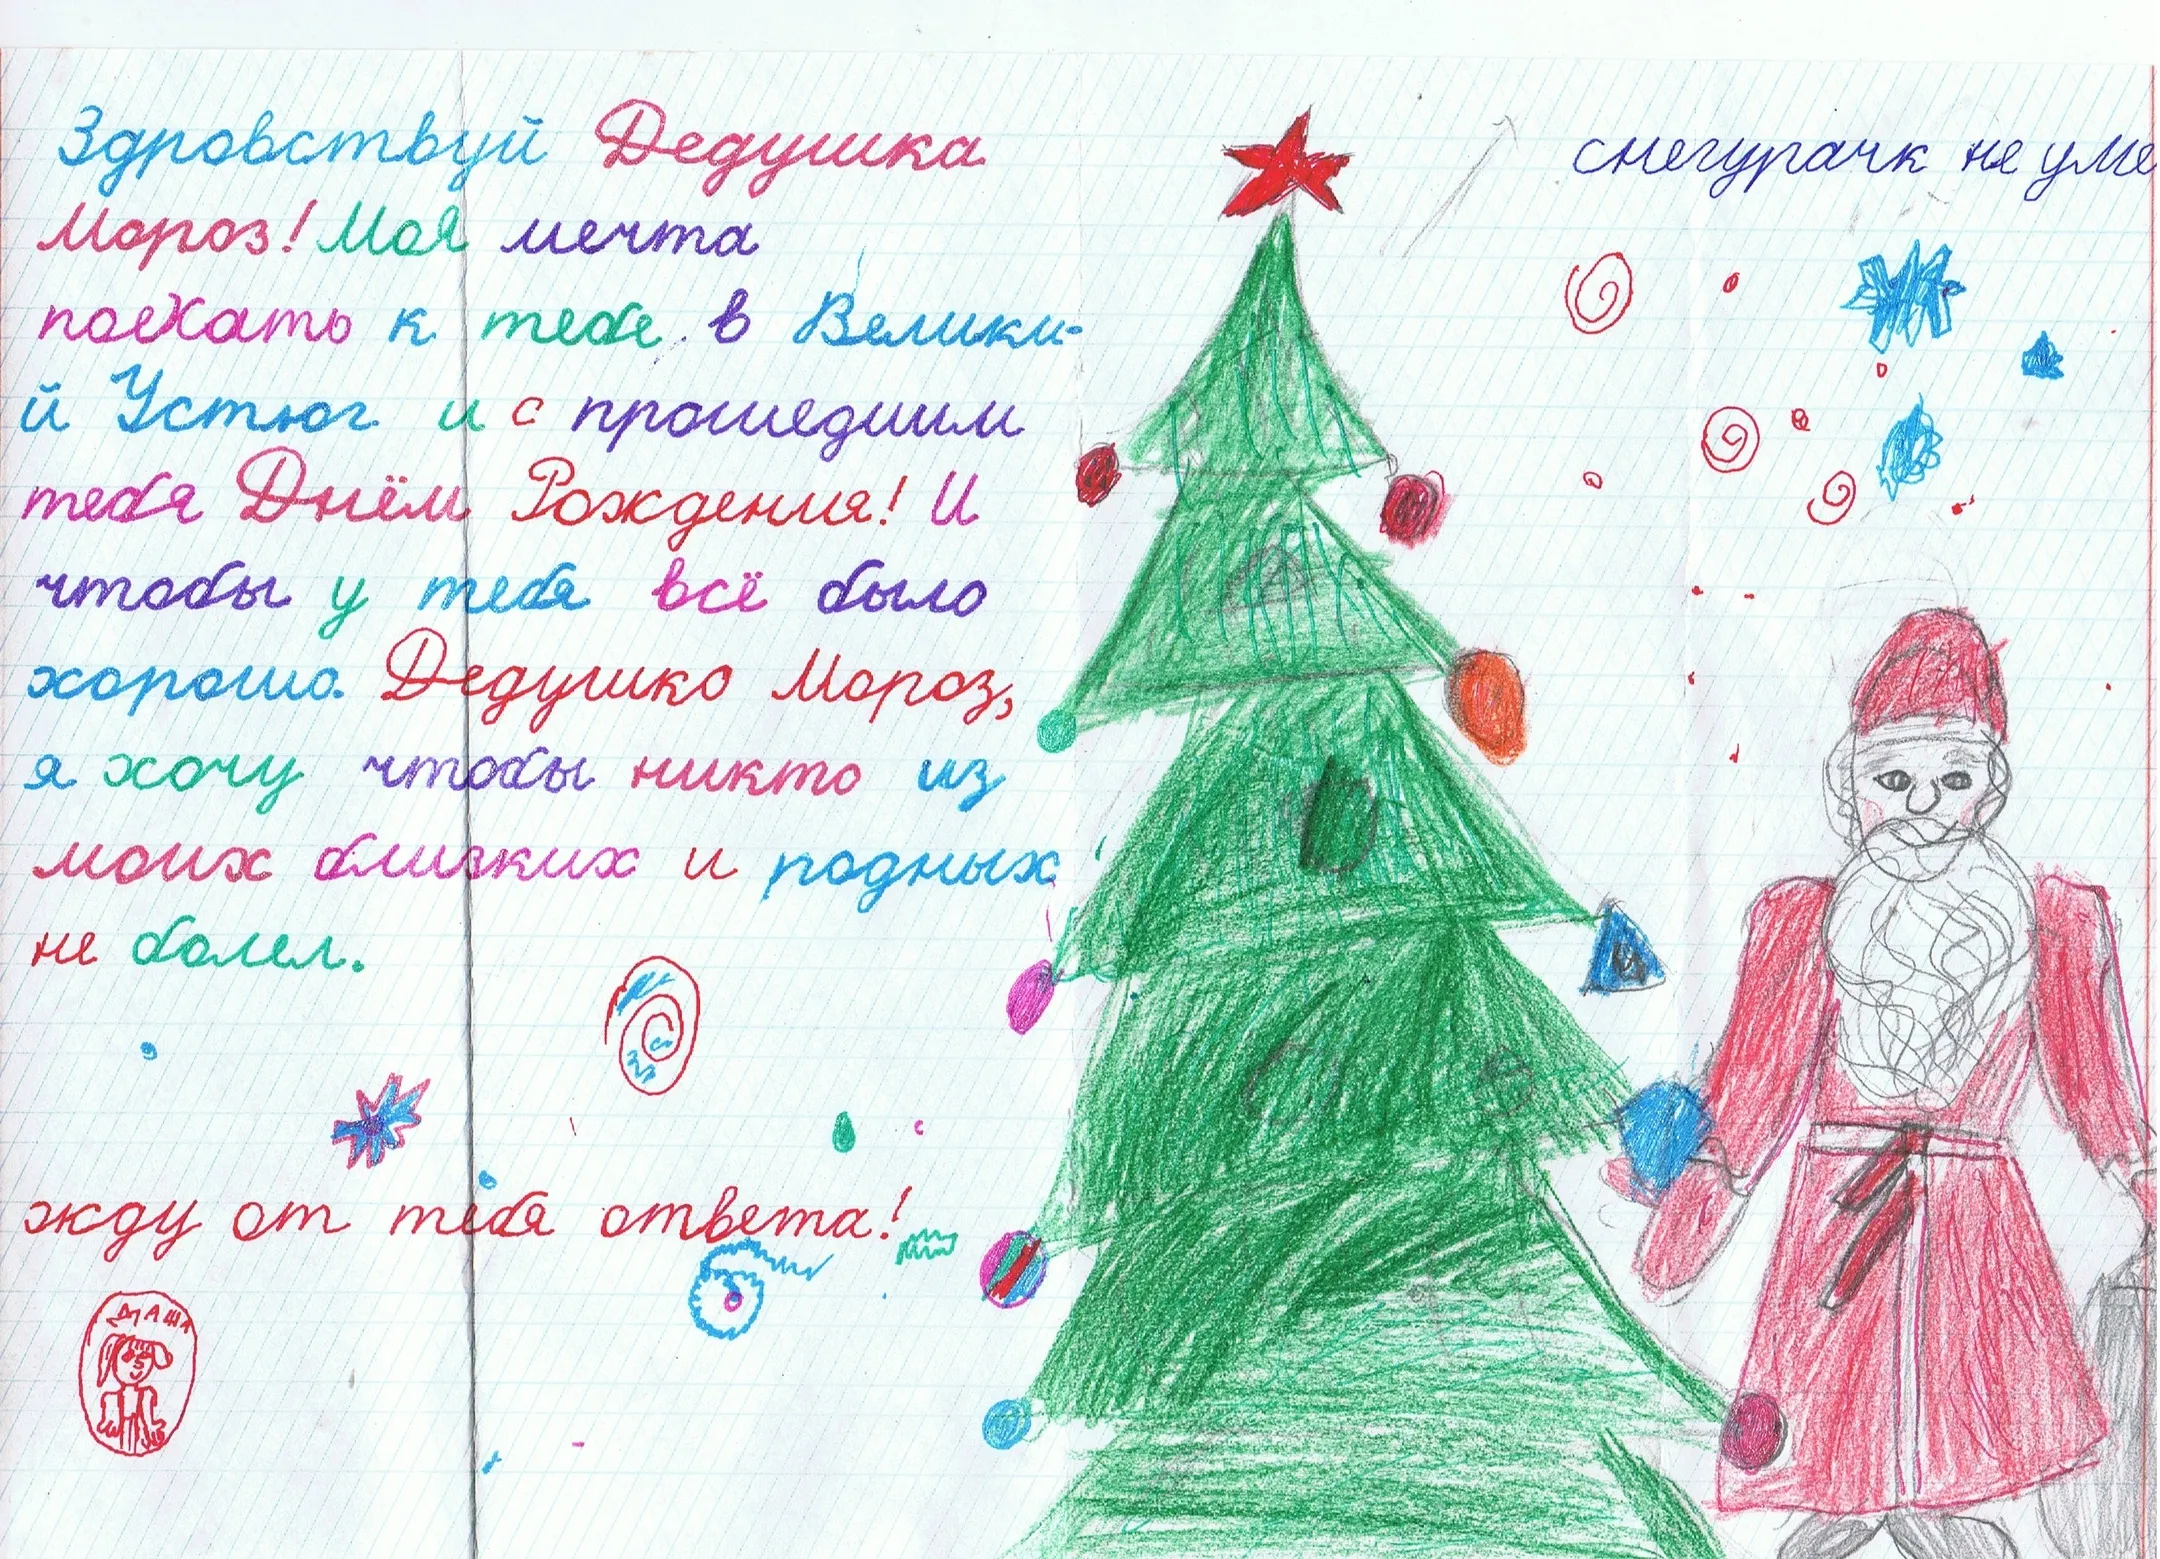 Здравствуй Дедушка
Мороз! Моя мечта
поехать к тебе в Велики-
й Устюг и с прошедшим
тебя Днём Рождения! И
чтобы у тебя всё было
хорошо. Дедушко Мороз,
я хочу чтобы никто из
моих близких и родных
не болел.
жду от тебя ответа!
ДАША
снегурачк не уме